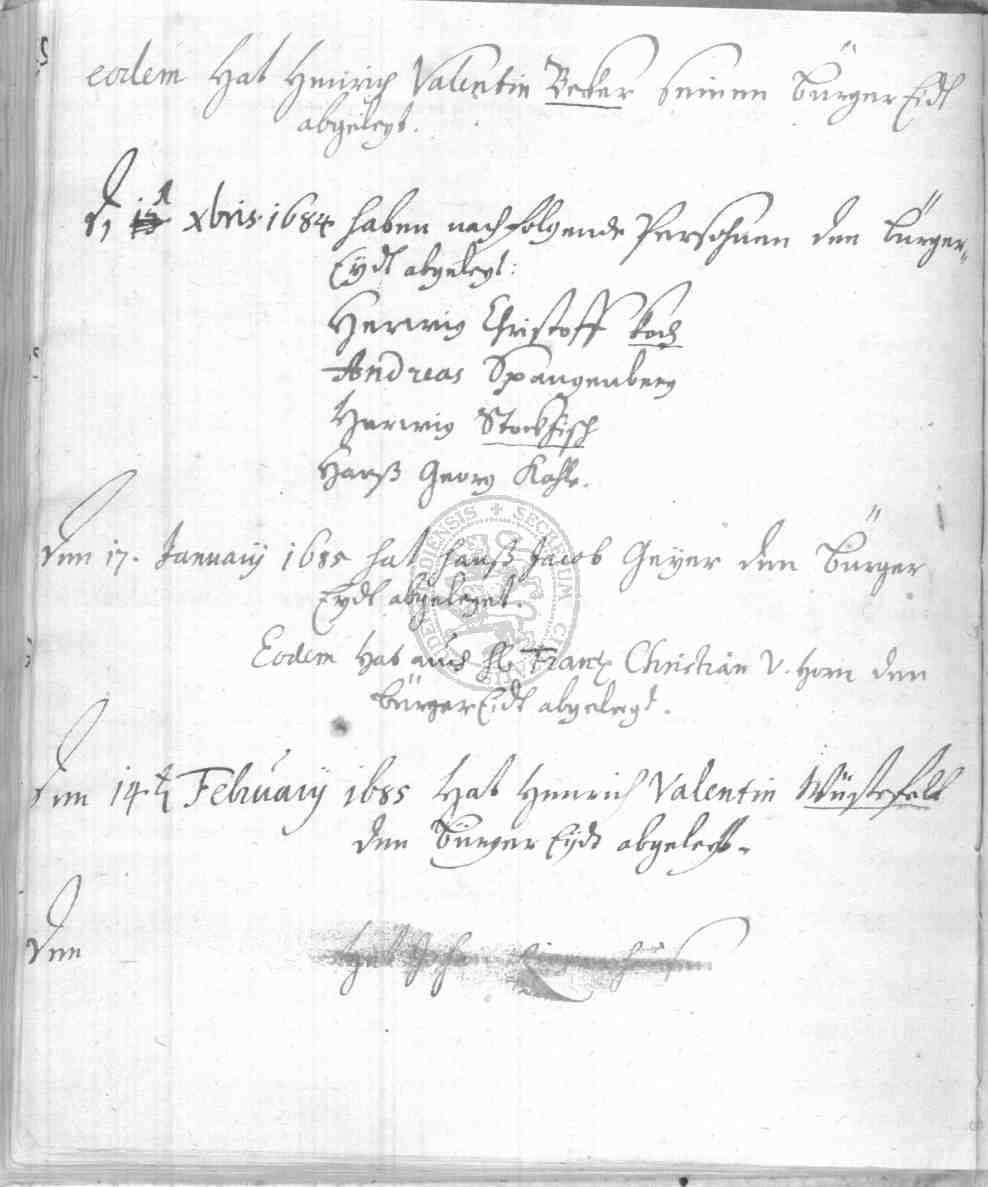 eodem Hat Henrich Valentin Becker seinen BürgerEidt
abgelegt.
Xbris 1684 haben nachfolgende Persohnen den Bürger-
Eydt abgelegt:
Herwig Christoff Koch
Andreas Spangenberg
Herwig Stockfisch
Hanß Georg Kahle.
Den 17. Januarij 1685 hat Hanß Jacob Geyer den Bürger
Eydt abgeleget.
Eodem Hat auch H. Frantz Christian V. Horn den
BürgerEidt abgelegt.
Den 14t Februarij 1685 Hat Henrich Valentin Wüstefelt
den Bürger Eydt abgelegt.
Den hat Johan